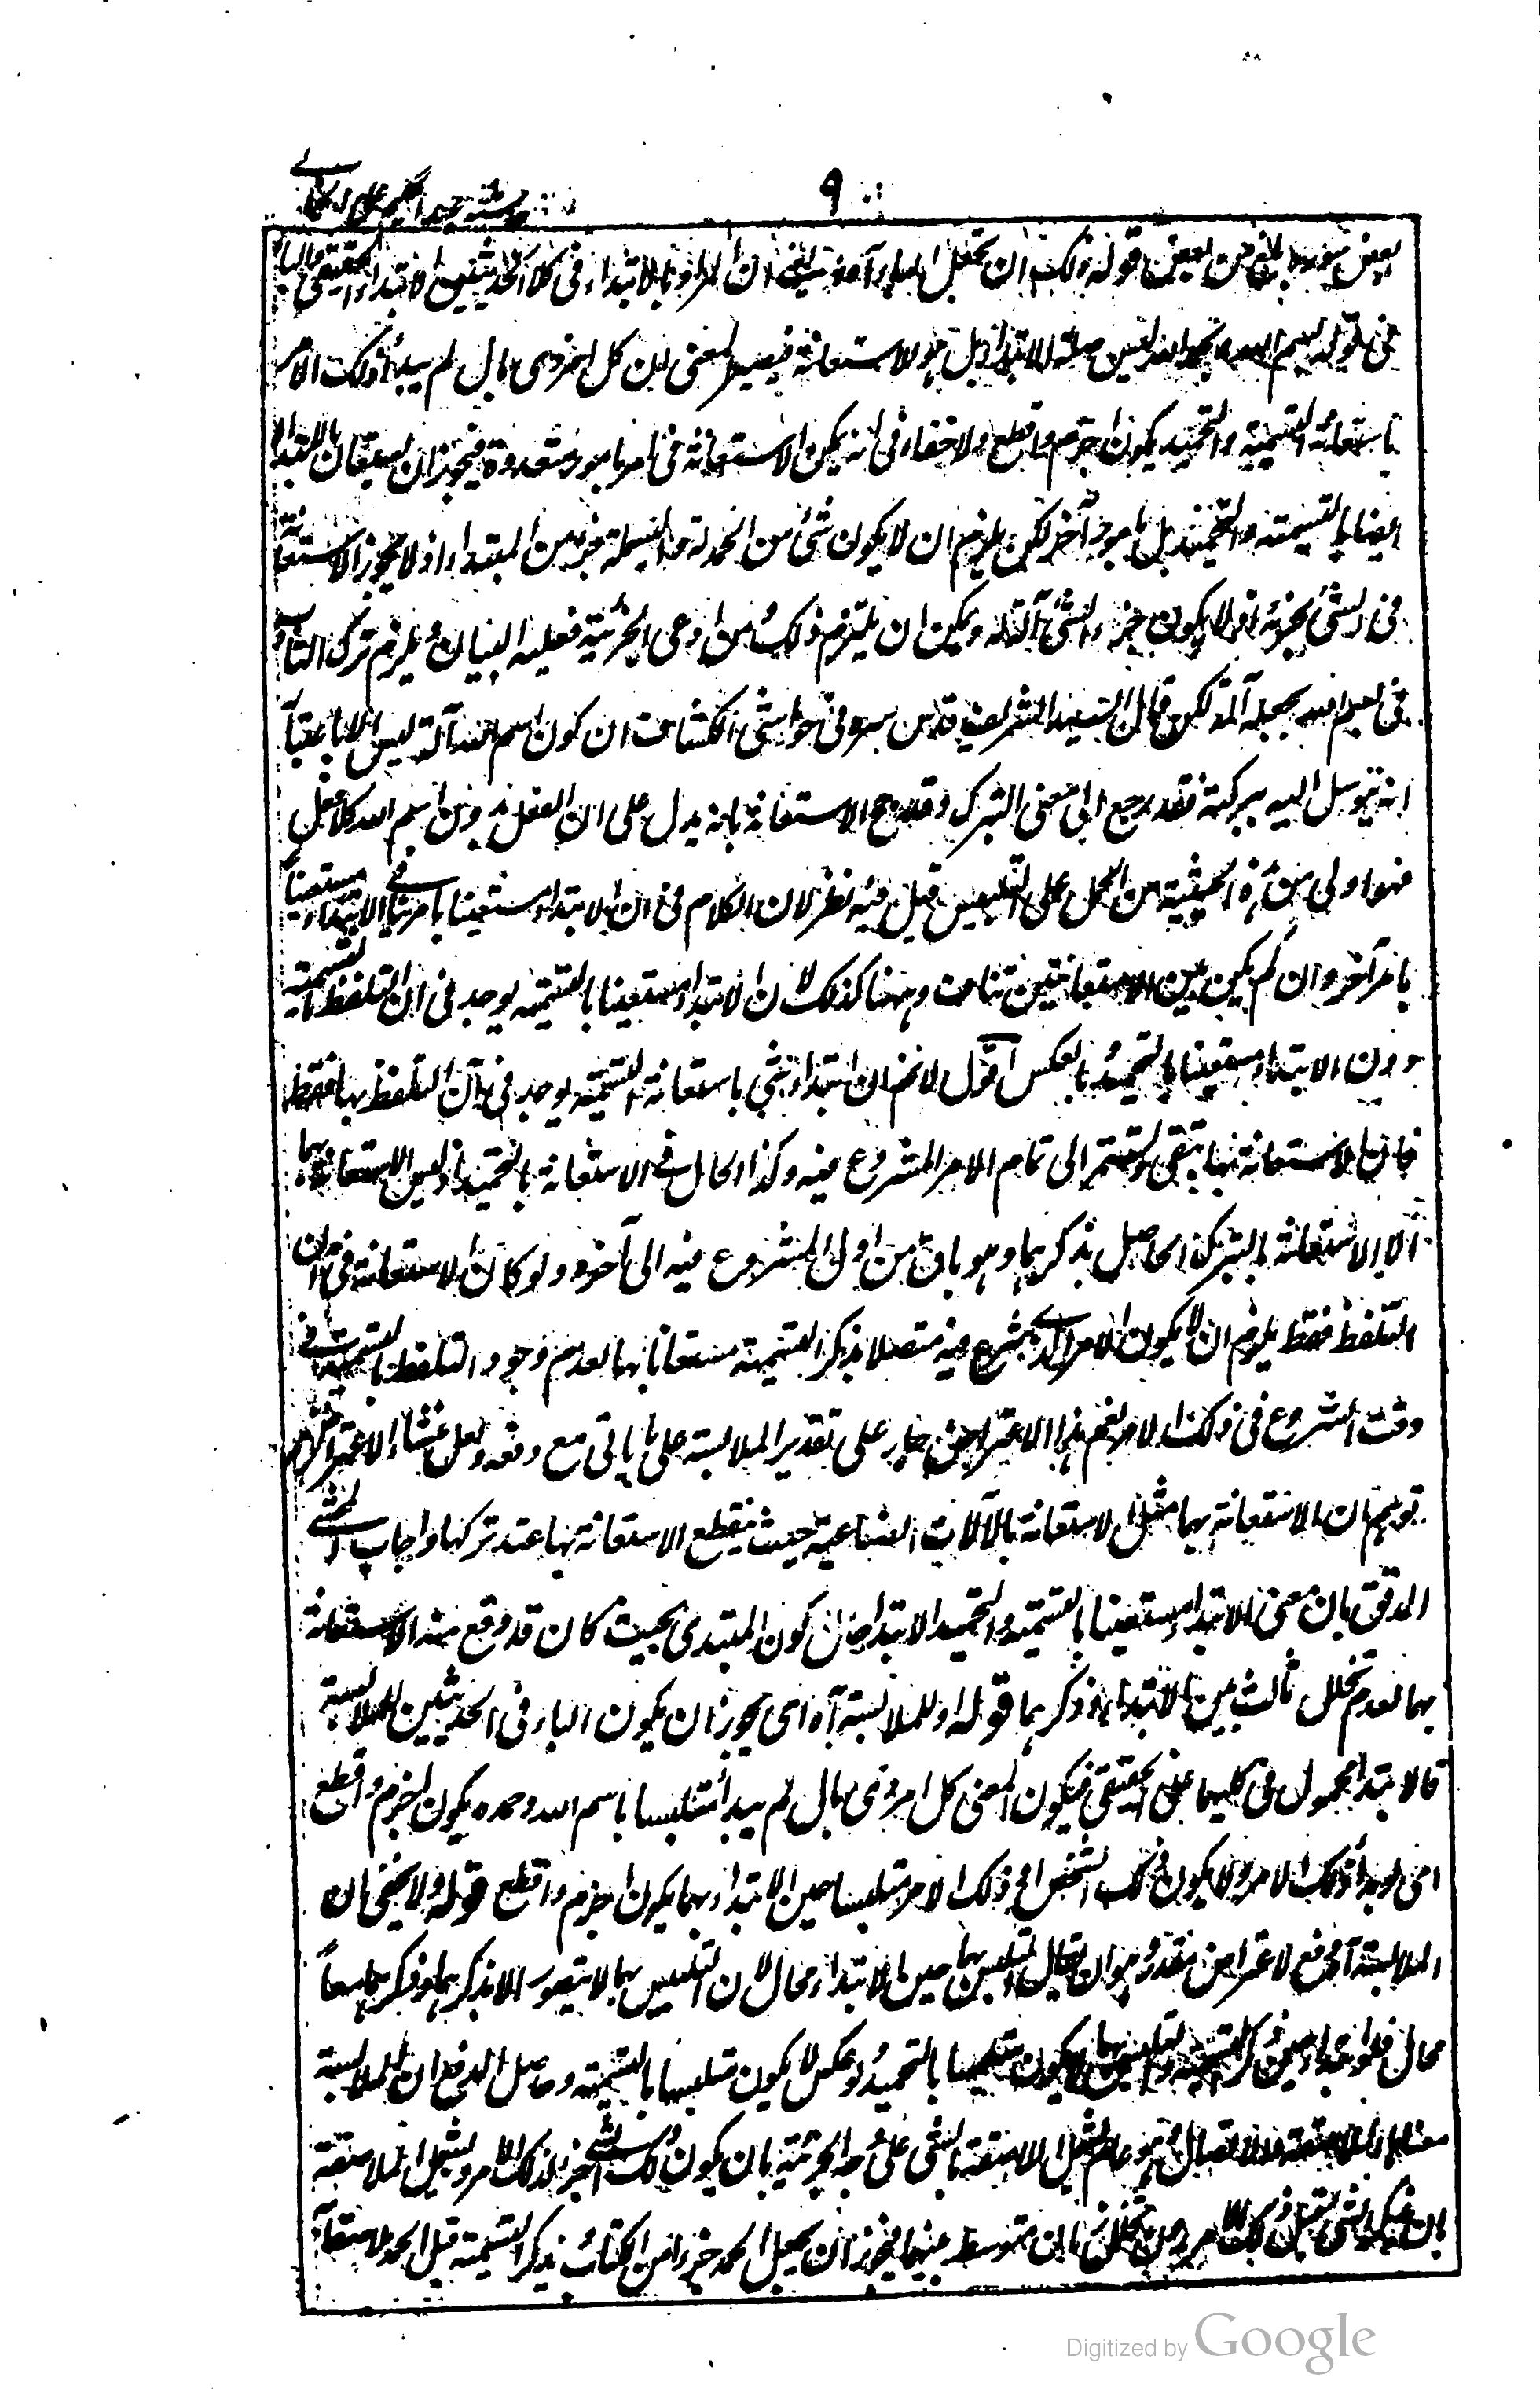 ٩
حاشية عبد الحكيم على الخيالي
بعض صوره بالغ من بعض قوله ذلك ان تجعل الباء آه يعني ان المراد بالابتداء في كلا الحديثين الابتداء الحقيقي والباء
في قوله بسم الله وبحمد الله ليس صلة الابتداء بل هو للاستعانة فيصير المعنى ان كل امر ذى بال لم يبدأ ذلك الامر
باستعانة التسمية والتحميد يكون اجزم واقطع ولا خفاء فى انه يمكن الاستعانة فى امر بامور متعددة فيجوز ان يستعان بالابتداء
ايضا بالتسمية والتحميد بل بامور آخر لكن يلزم ان لا يكون شئ من الحمدلة والبسملة جزء من المبتدأ اذ لا يجوز الاستعانة
فى الشئ بجزئه اذ لا يكون جزء الشئ آلة له ويمكن ان يلتزم ذلك ومن ادعى الجزئية فعليه البيان ويلزم ترك التأدب
فى بسم الله بجعله آلة لكن قال السيد الشريف قدس سره فى حواشى الكشاف ان كون اسم الله آلة ليس الا باعتبار
انه يتوسل اليه ببركته فقد رجع الى معنى التبرك وقد رجح الاستعانة بانه يدل على ان الفعل بدون اسم الله كلا فعل
فهو اولى من هذه الحيثية من الحمل على التلبس قيل فيه نظر لان الكلام فى ان الابتداء مستعينا بامر ينافى الابتداء مستعيناً
بامر آخر وان لم يكن بين الاستعانتين تناف وههنا كذلك لان الابتداء مستعينا بالتسمية يوجد فى آن التلفظ بالتسمية
دون الابتداء مستعينا بالتحميد وبالعكس اقول لانم ان ابتداء شئ باستعانة التسمية يوجد فى آن التلفظ بها فقط
فان الاستعانة بها يبقى ويستمر الى تمام الامر المشروع فيه وكذا الحال فى الاستعانة بالتحميد اذ ليس الاستعانة بهما
الا الاستعانة بالتبرك الحاصل بذكرهما وهو باق من اول المشروع فيه الى آخره ولو كان الاستعانة فى آن
التلفظ فقط يلزم ان لا يكون الامر الذى يشرع فيه متصلا بذكر التسمية مستعانا بها لعدم وجود التلفظ بالتسمية فى
وقت الشروع فى ذلك الامر نعم هذا الاعتراض جار على تقدير الملابسة على ما ياتى مع دفعه ولعل منشاء الاعتراض
توهم ان الاستعانة بهما مثل الاستعانة بالآلات الصناعية حيث ينقطع الاستعانة بها عند تركها واجاب المحشى
المدقق بان معنى الابتداء مستعينا بالتسمية والتحميد الابتداء حال كون المبتدى بحيث كان قد وقع منه الاستعانة
بهما لعدم تخلل ثالث بين الابتداء وذكرهما قوله او للملابسة آه اى يجوز ان يكون الباء فى الحديثين للملابسة
فالابتداء محمول فى كليهما على الحقيقى فيكون المعنى كل امر ذى بال لم يبدأ متلبسا باسم الله وحمده يكون اجزم واقطع
اى لو بدأ ذلك الامر ولا يكون ذلك الشخص او ذلك الامر متلبسا حين الابتداء بهما يكون اجزم واقطع قوله ولا يخفى ان
الملابسة آه دفع لاعتراض مقدر وهو ان يقال التلبس بهما حين الابتداء محال لان التلبس بهما لا يتصور الا بذكرهما وذكرهما معاً
محال فلو ابتدأ حين ذكر التسمية والتلبس بها لا يكون متلبسا بالتحميد ولو عكس لا يكون متلبسا بالتسمية وحاصل الدفع ان الملابسة
معناها الملاصقة والاتصال وهو عام يشمل الملاصقة بالشئ على وجه الجزئية بان يكون ذلك الشئ جزء لذلك الامر ويشمل الملاصقة
بان يذكر الشئ قبل ذلك الامر بدون تخلل زمان متوسط بينهما فيجوز ان يجعل الحمد جزءا من الكتاب ويذكر التسمية قبل الحمد ملاصقاً